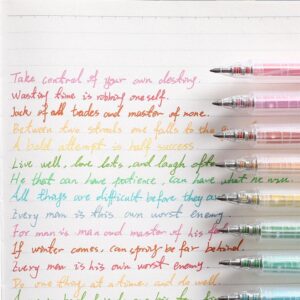 Take control of your own destiny.
Wasting time is robbing oneself.
Jack of all trades and master of none.
Between two stools one falls to the
A bold attempt is half success
Live well, love lots, and laugh often
He that can have patience, can have what he
All things are difficult before they are
Every man is his own worst enemy
For man is man and master of his
If winter comes, can spring be far behind.
Every man is his own worst enemy.
Do one thing at a time, and do well.